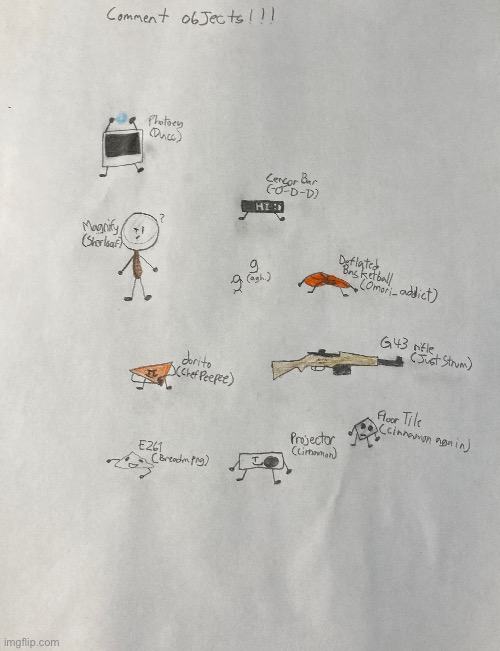 Comment objects!!!
Photoey
(Ducc)
Censor Bar
(-O-D-D)
HI :)
Magnify
(Sherloaf)
?
g
(agh.)
g
Deflated
Basketball
(Omori_addict)
G43 rifle
(JustStrum)
dorito
(ChefPeepee)
Floor Tile
(cinnamon again)
E261
(Breadm.png)
Projector
(Cinnamon)
imgflip.com